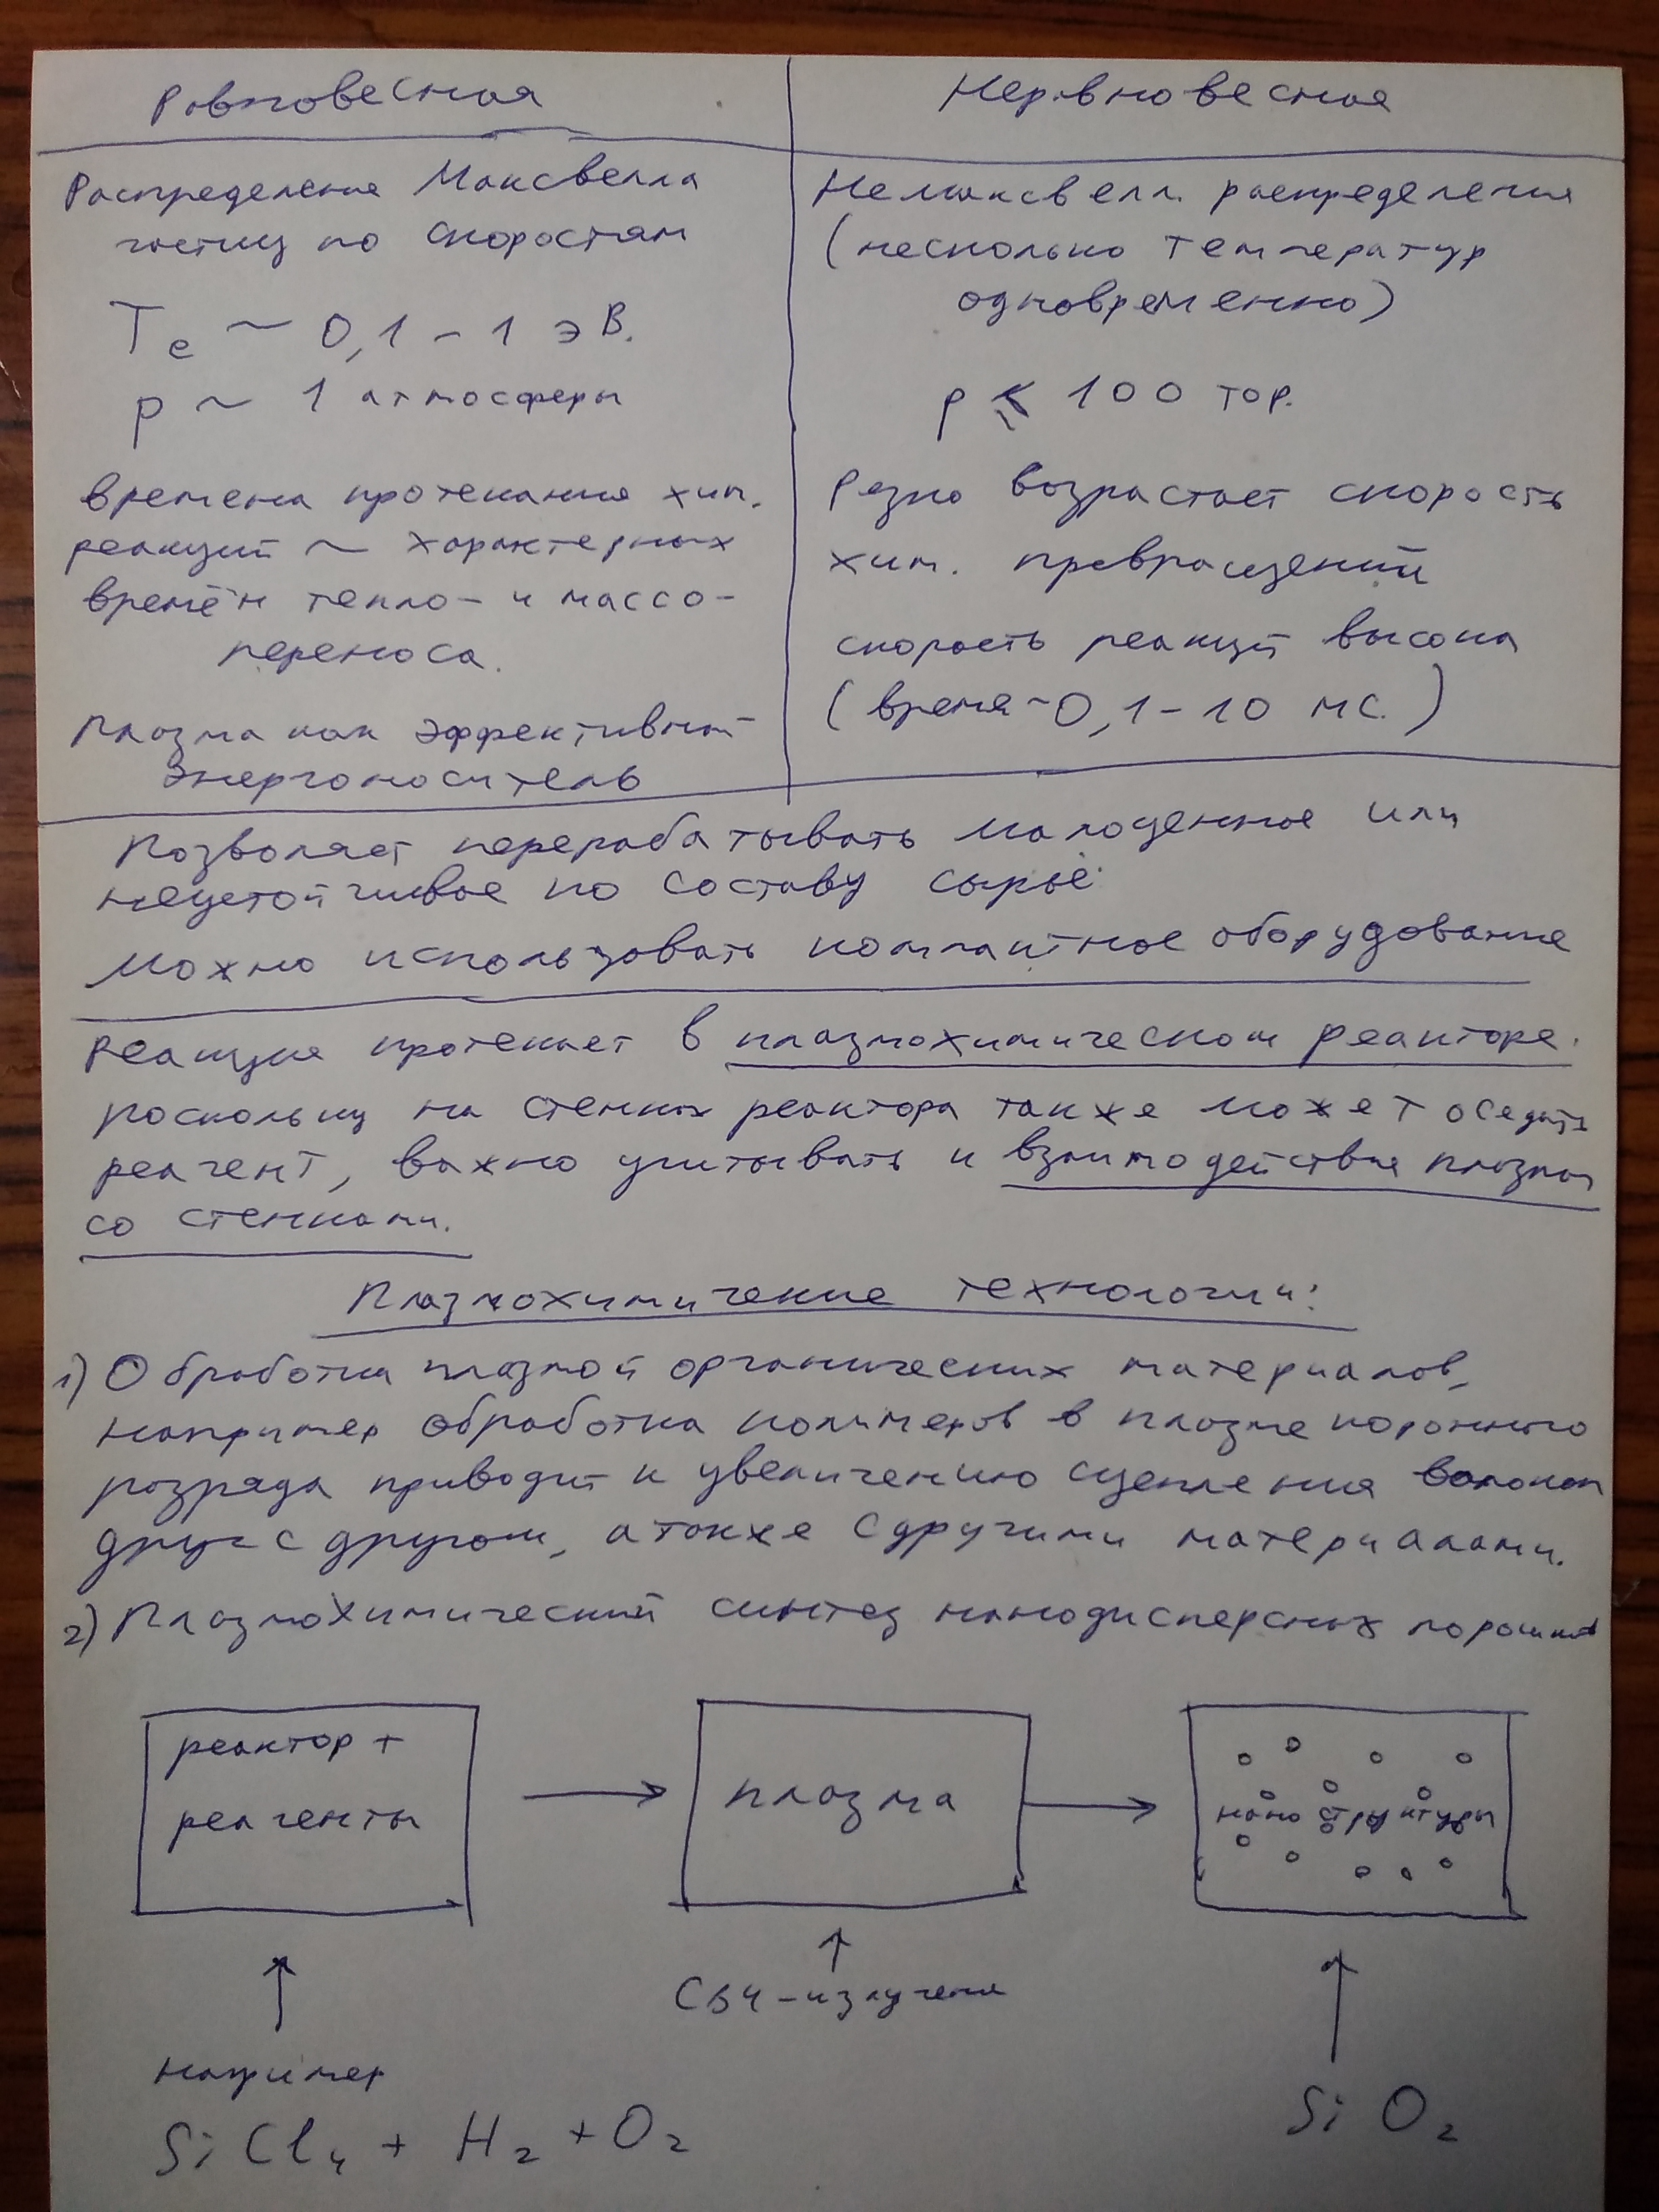 Равновесная
Распределение Максвелла
частиц по скоростям
Te ~ 0,1 – 1 эВ.
p ~ 1 атмосферы
времена протекания хим.
реакций ~ характерных
времён тепло- и массо-
переноса.
Плазма как эффективный
энергоноситель
Неравновесная
Немаксвелл. распределения
(несколько температур
одновременно)
p ≤ 100 тор.
Резко возрастает скорость
хим. превращений
скорость реакций высока
(время ~ 0,1 – 10 мс.)
Позволяет перерабатывать малоценное или
неустойчивое по составу сырьё.
Можно использовать компактное оборудование
Реакция протекает в плазмохимическом реакторе.
поскольку на стенках реактора также может оседать
реагент, важно учитывать и взаимодействия плазмы
со стенками.
Плазмохимические технологии:
1) Обработка плазмой органических материалов,
например обработка полимеров в плазме коронного
разряда приводит к увеличению сцепления волокон
друг с другом, а также с другими материалами.
2) Плазмохимический синтез нанодисперсных порошков
реактор +
реагенты
плазма
нано структуры
СВЧ-излучение
например
SiCl₄ + H₂ + O₂
SiO₂